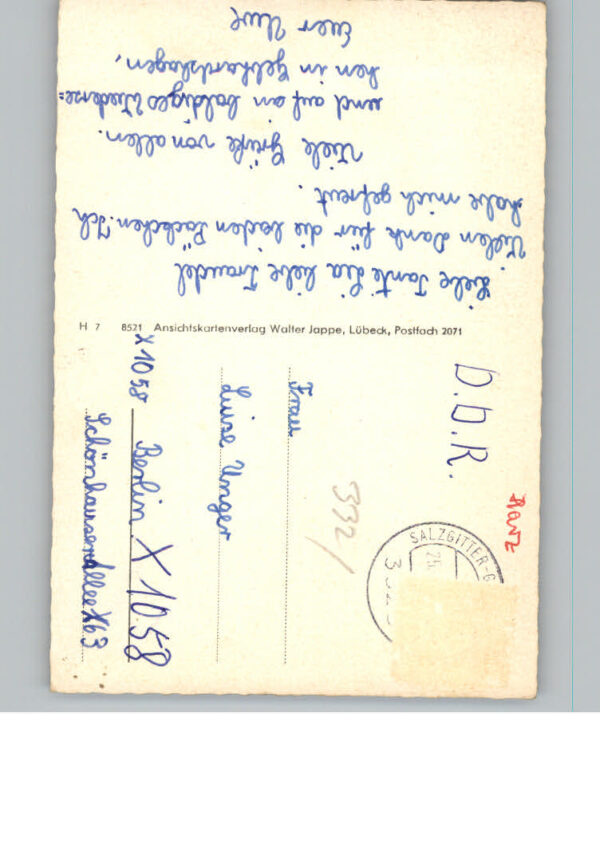 Liebe Tante Lia liebe Traudel
Vielen Dank für die beiden Päckchen. Ich
habe mich gefreut.
Viele Grüße von allen.
und auf ein baldiges Wiederse=
hen in Gebhardshagen,
Euer Uwe
H 7 8521 Ansichtskartenverlag Walter Jappe, Lübeck, Postfach 2071
D.D.R.
Harz
SALZGITTER-G
25.
3321
Frau
Luise Unger
X1058 Berlin X 1058
Schönhauserallee 63